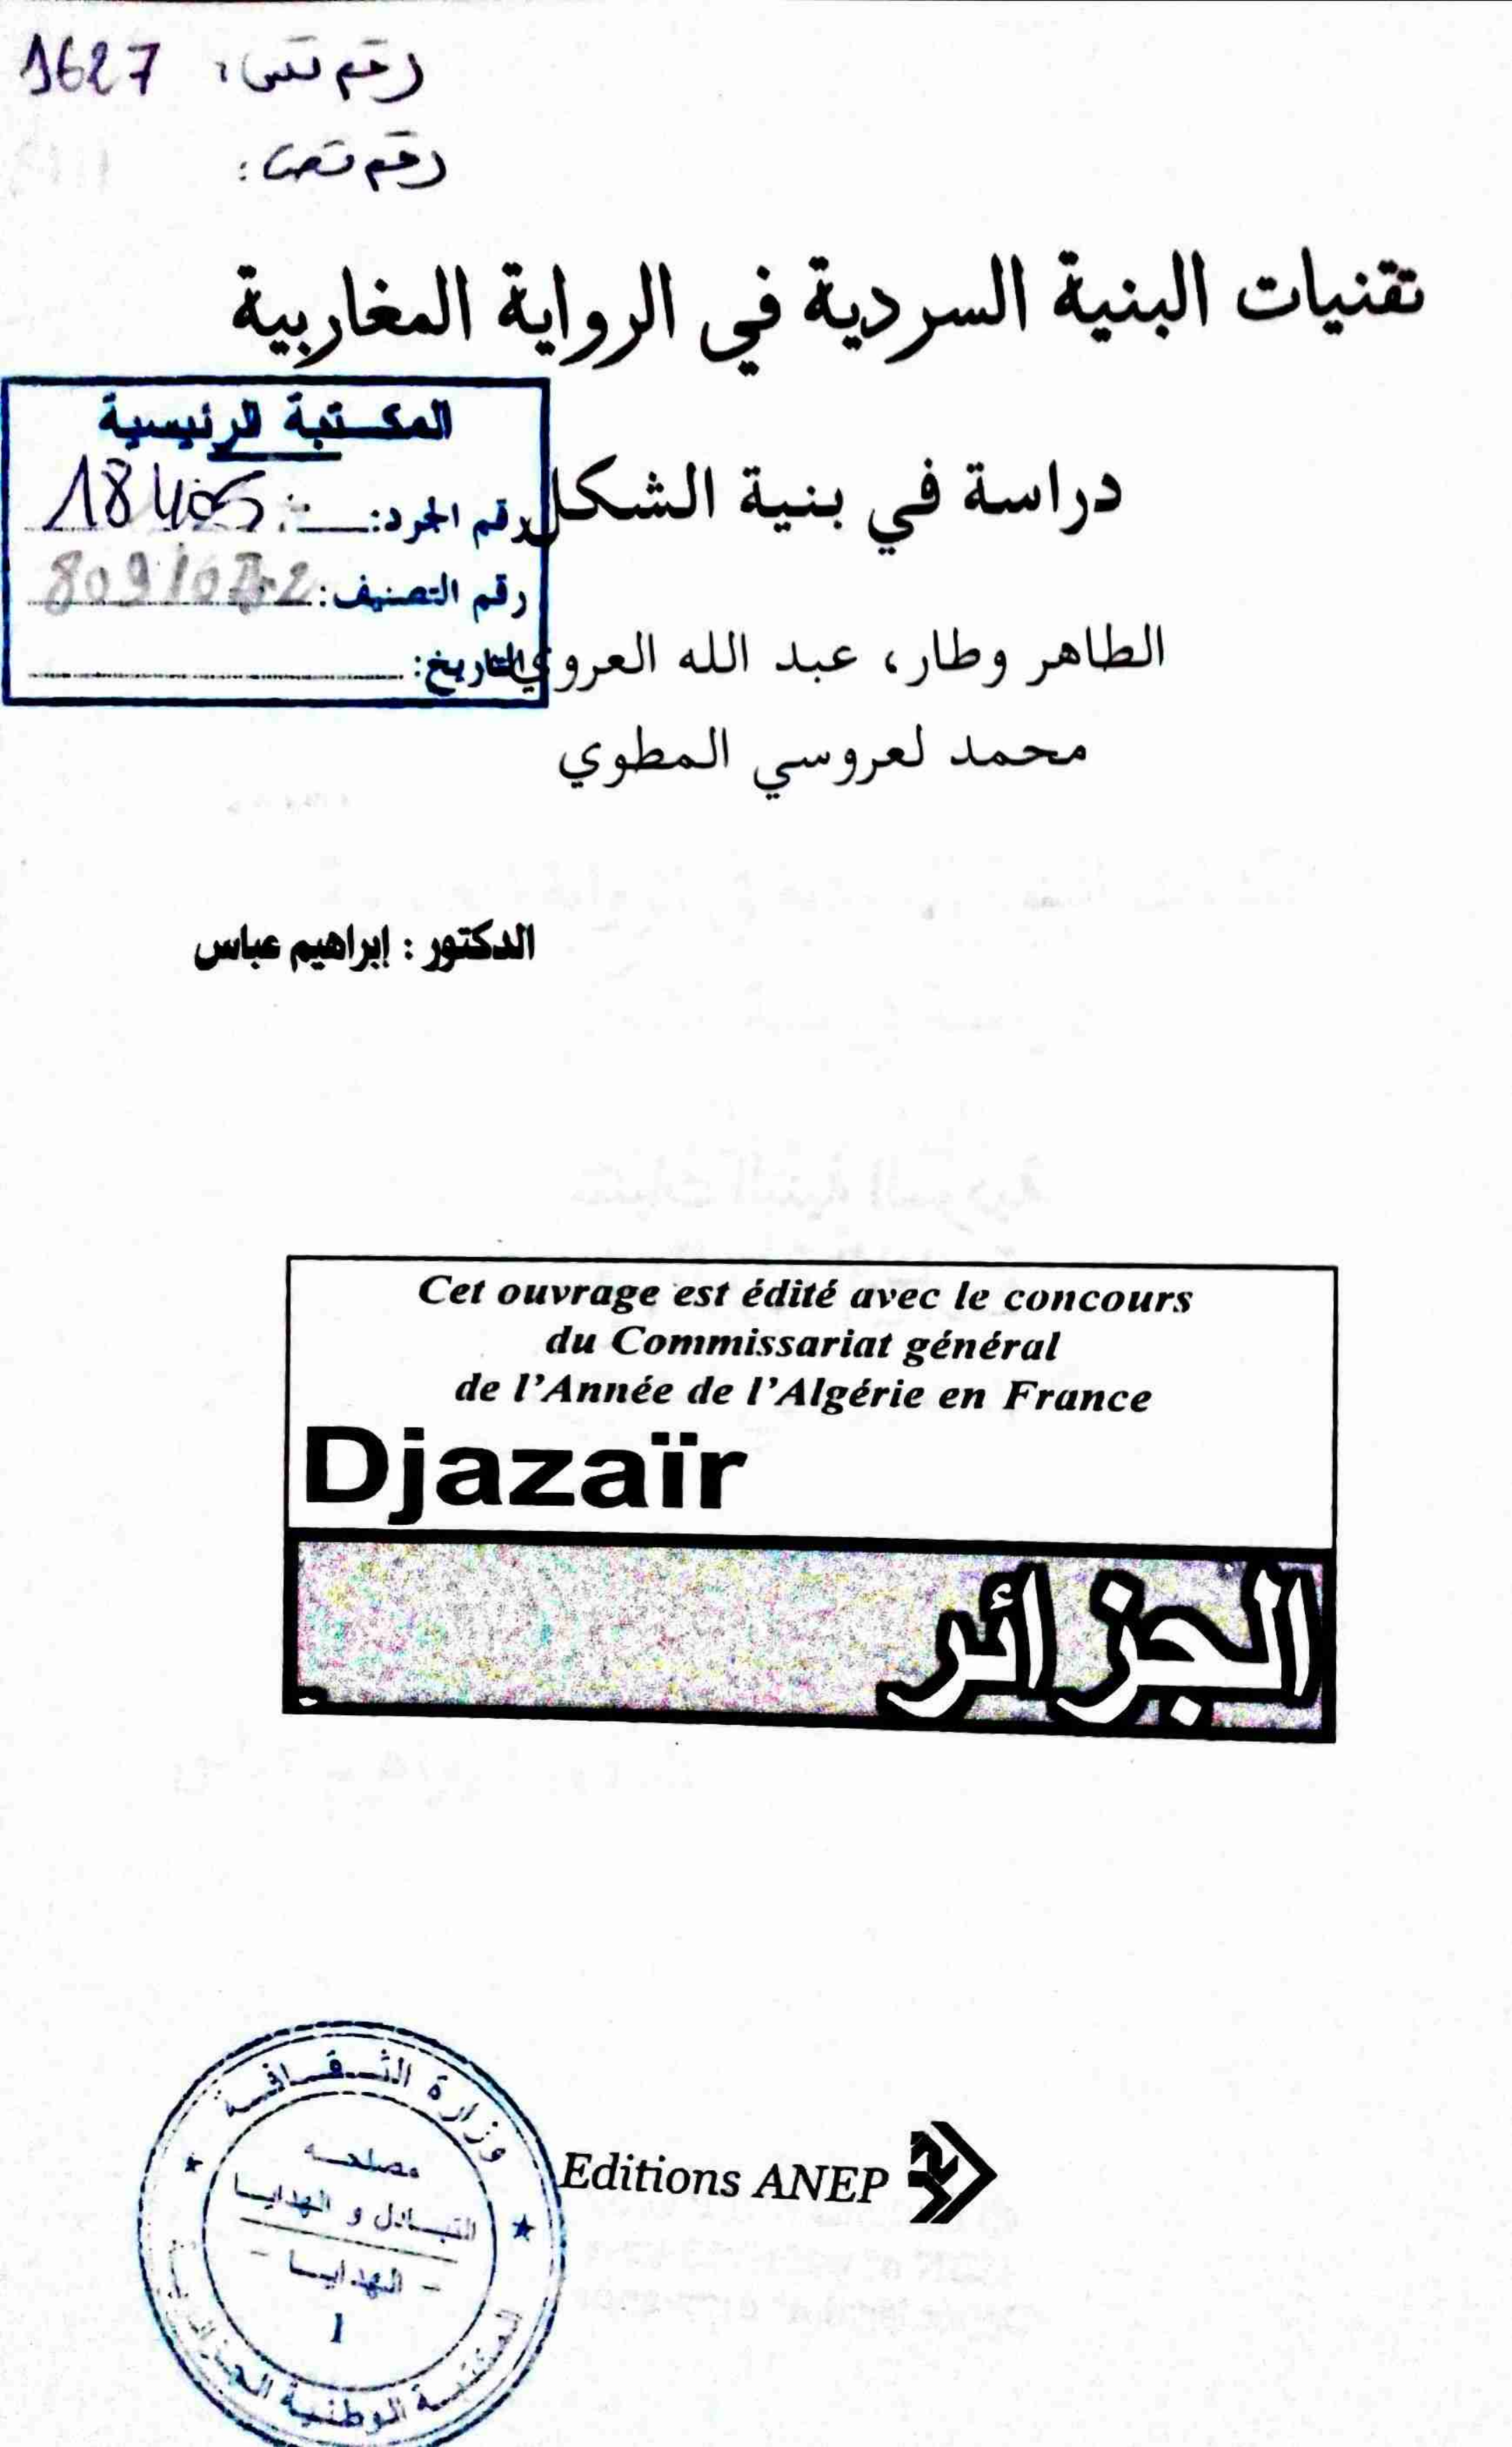 1627
رقم
رقم
تقنيات البنية السردية في الرواية المغاربية
المكتبة الرئيسية
رقم الجرد:
رقم التصنيف:
التاريخ:
دراسة في بنية الشكل
الطاهر وطار، عبد الله العروي
محمد لعروسي المطوي
الدكتور : إبراهيم عباس
Cet ouvrage est édité avec le concours
du Commissariat général
de l'Année de l'Algérie en France
Djazaïr
الجزائر
Editions ANEP
وزارة الثقافة
مصلحة
التبادل و الهدايا
- الهدايا -
1
المكتبة الوطنية الجزائرية